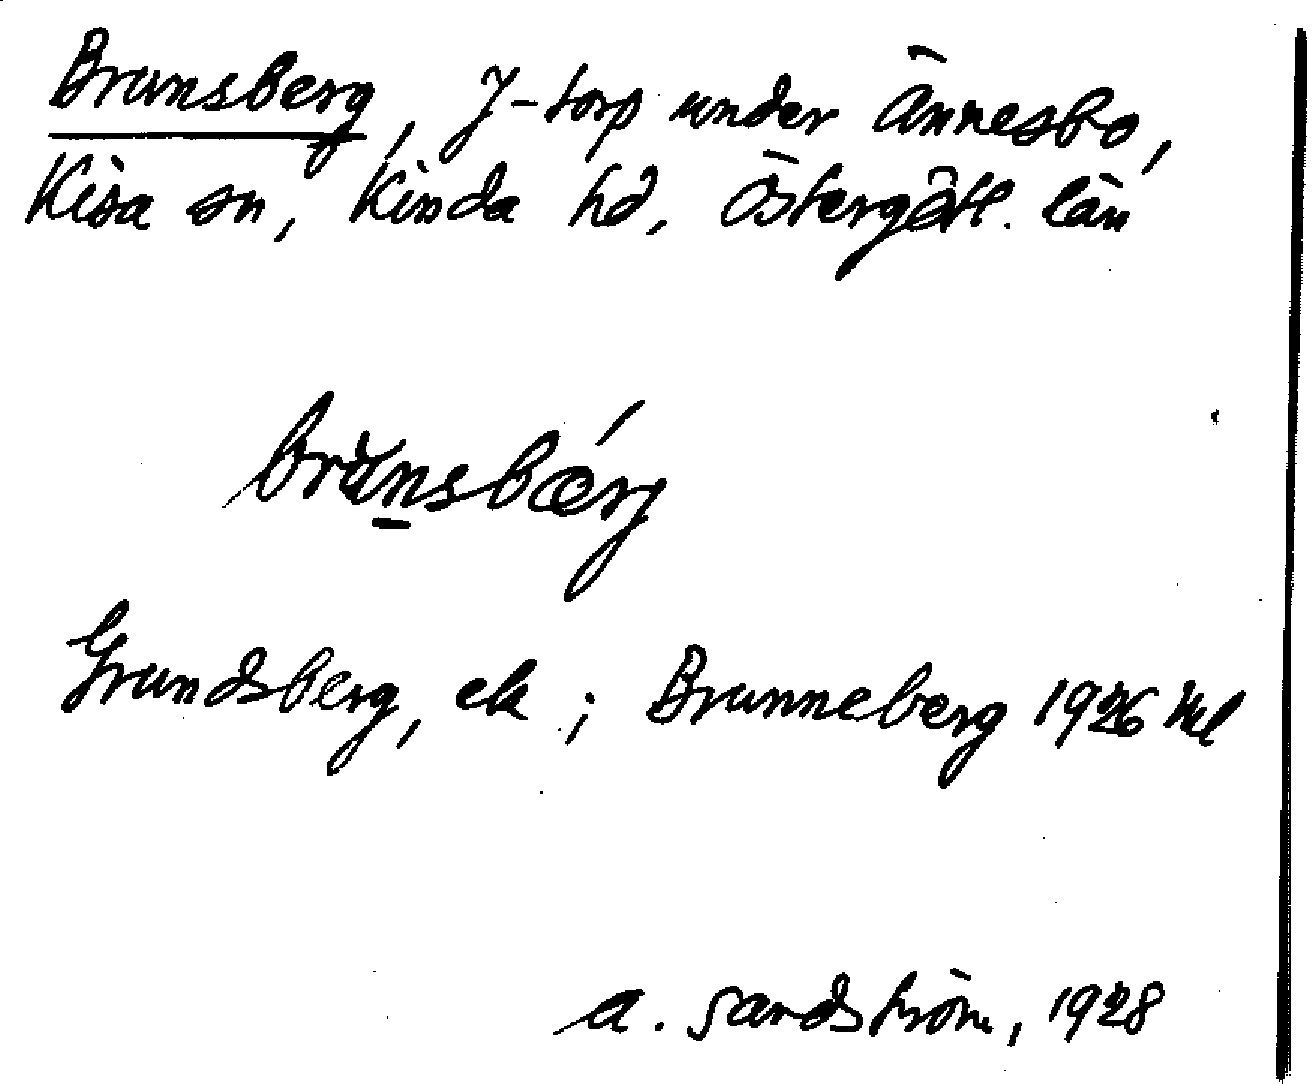 Brunsberg, J-torp under Ånnesbo,
Kisa sn, Kinda hd, Östergötl. län
brùnsbǽrj
Grundsberg, ek ; Brunneberg 1926 Ml
A. Sandström, 1928